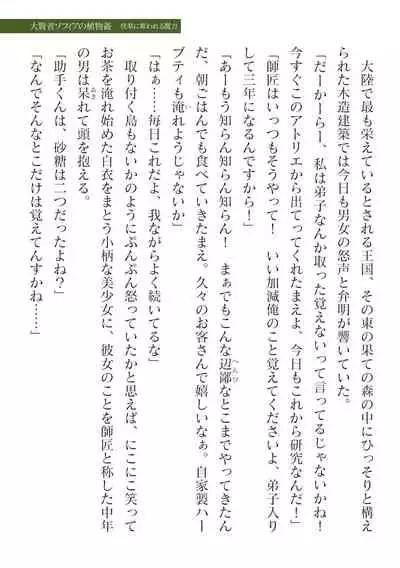 大賢者ソフィアの植物姦　伎草に犯われる魔力
大陸で最も栄えているとされる王国、その東の果ての森の中にひっそりと構え
られた木造建築では今日も男女の怒声と弁明が響いていた。
「だーかーらー、私は弟子なんか取った覚えないって言ってるじゃないかね！
今すぐこのアトリエから出てってくれたまえよ、今日もこれから研究なんだ！」
「師匠はいっつもそうやって！　いい加減俺のこと覚えてくださいよ、弟子入り
して三年になるんですから！」
「あーもう知らん知らん知らん！　まぁでもこんな辺鄙なとこまでやってきたん
へんぴ
だ、朝ごはんでも食べていきたまえ。久々のお客さんで嬉しいなぁ。自家製ハー
ブティも淹れようじゃないか」
い
「はぁ……毎日これだよ、我ながらよく続いてるな」
取り付く島もないかのようにぷんぷん怒っていたかと思えば、にこにこ笑って
お茶を淹れ始めた白衣をまとう小柄な美少女に、彼女のことを師匠と称した中年
の男は呆れて頭を抱える。
あき
「助手くんは、砂糖は二つだったよね？」
「なんでそんなとこだけは覚えてんすかね……」